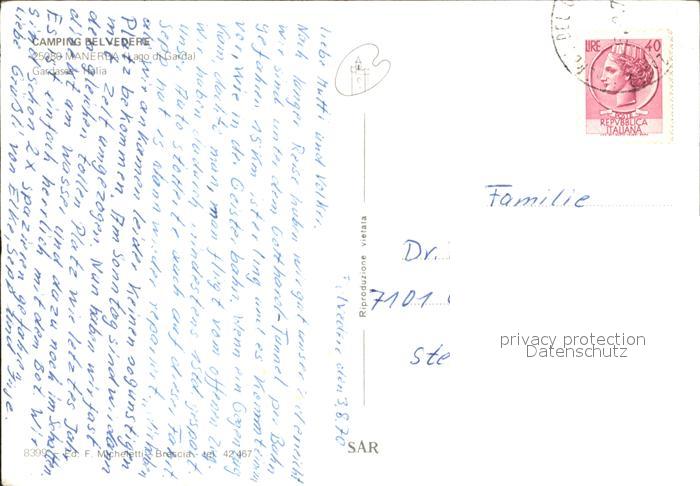 CAMPING BELVEDERE
25080 MANERBA (Lago di Garda)
Gardasee - Italia
Liebe Mutti und Volker.
Nach langer Reise haben wir gut unser Ziel erreicht
wir sind unter dem Gotthard-Tunnel per Bahn
gefahren 15 Km ist er lang und es kommt einem
vor, wie in der Geisterbahn, wenn ein Gegenzug
kam dachte man, man fliegt vom offenen Zug
uns. Auto stotterte auch auf dieser Fahrt
wir haben dadurch mindestens 1 Std. gespart.
Sepp hat es dann wieder repariert.
als wir ankamen leider keinen so günstigen
Platz bekommen. Am Sonntag sind wir dann
mit Zelt umgezogen. Nun haben wir fast
den gleichen tollen Platz wie letztes Jahr
direkt am Wasser und dazu noch im Schatten.
Es ist einfach herrlich mit dem Bot. Wir
sind schon 2x spazieren gefahren.
Liebe Grüße von Elke Sepp und
8399 - Ed. F. Micheletti - Brescia - tel. 42.467
Riproduzione vietata
den 3.8.70
SAR
LIRE 40
POSTE
REPVBBLICA
ITALIANA
Familie
Dr.
7101
Ste
privacy protection
Datenschutz